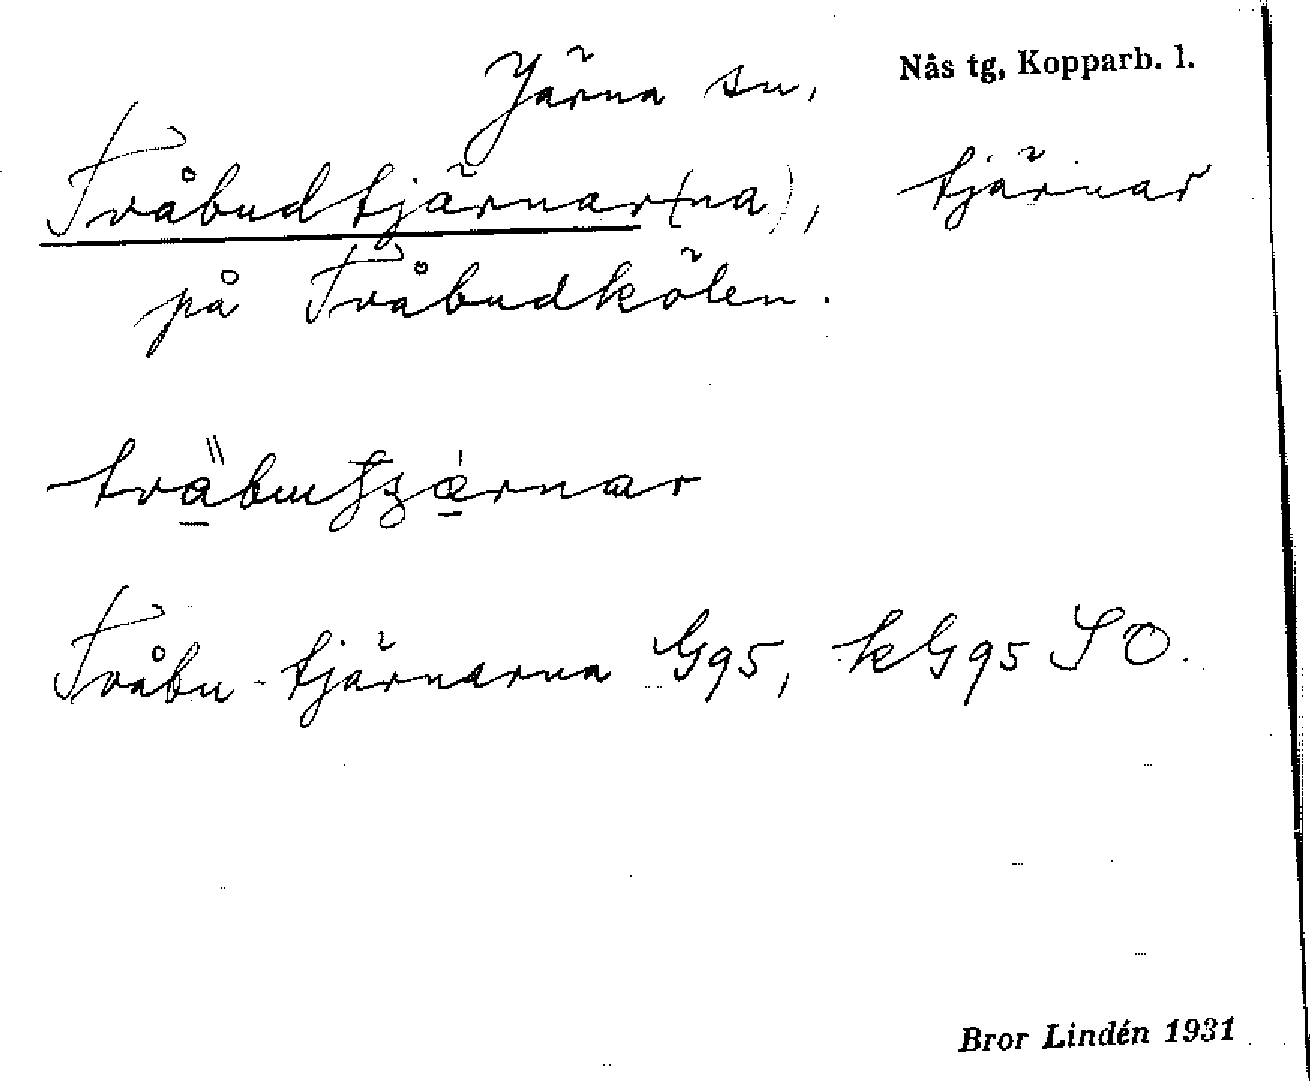 Järna sn, Nås tg, Kopparb. l.
Tvåbudtjärnar(na), tjärnar
på Tvåbudkölen.
Tvåbu-tjärnarna G95, kG95 SO.
Bror Lindén 1931